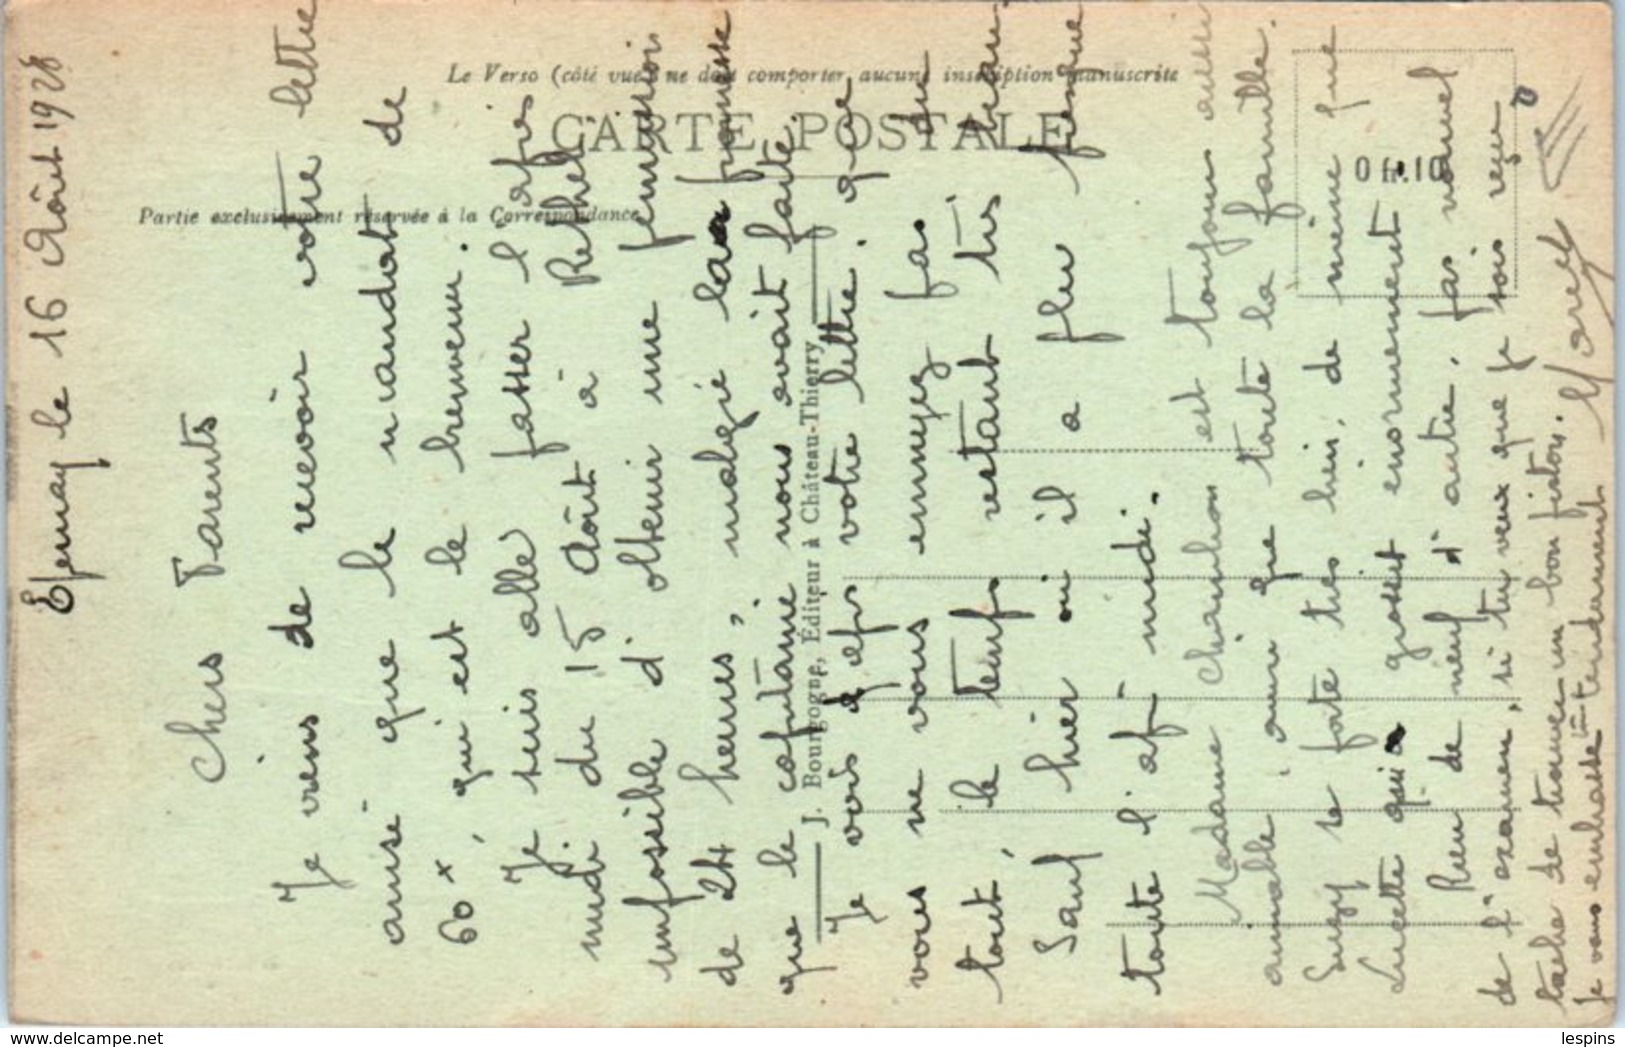 Le Verso (côté vue) ne doit comporter aucune inscription manuscrite
CARTE POSTALE
0 fr. 10
Partie exclusivement réservée à la Correspondance
J. Bourgogne, Éditeur à Château-Thierry
Epernay le 16 Août 1928
Chers Parents
Je viens de recevoir votre lettre
ainsi que le mandat de
60 x, qui est le bienvenu.
Je suis allé passer l'après
midi du 15 Août à Rethel
impossible d'obtenir une permission
de 24 heures, malgré la promesse
que le capitaine nous avait faite.
Je vois d'après votre lettre que
vous ne vous ennuyez pas du
tout, le temps restant très beau.
Sauf hier où il a plu presque
toute l'après midi.
Madame Chambon est toujours aussi
aimable, ainsi que toute la famille.
Suzy se porte très bien, de même que
Lucette qui a grossit énormement
Rien de neuf d'autre, pas nouvel
de l'examen, si tu veux que je sois reçu
tache de trouver un bon piston.
Je vous embrasse tendrement
Marcel
delcampe.net
lespins